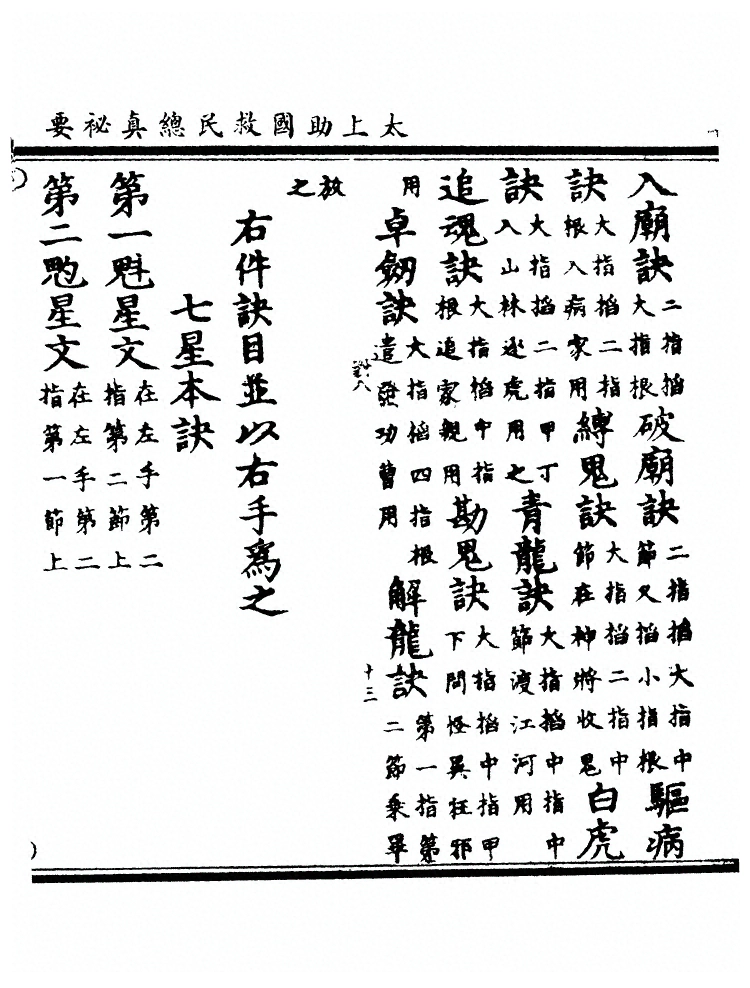 太上助國救民總真祕要
入廟訣二指掐大指根破廟訣二指掐大指中節又掐小指根驅病
訣大指掐二指根入病家用縛鬼訣大指掐二指中節在神將收鬼白虎
訣大指掐二指甲丁入山林逐虎用之青龍訣大指掐中指中節渡江河用
追魂訣大指掐中指根追家親用勘鬼訣大指掐中指甲下問怪異狂邪
用卓劒訣大指掐四指根遣發功曹用解龍訣第一指第二節乘畢
十三
放之
右件訣目並以右手寫之
七星本訣
第一魁星文在左手第二指第二節上
第二䰢星文在左手第二指第一節上